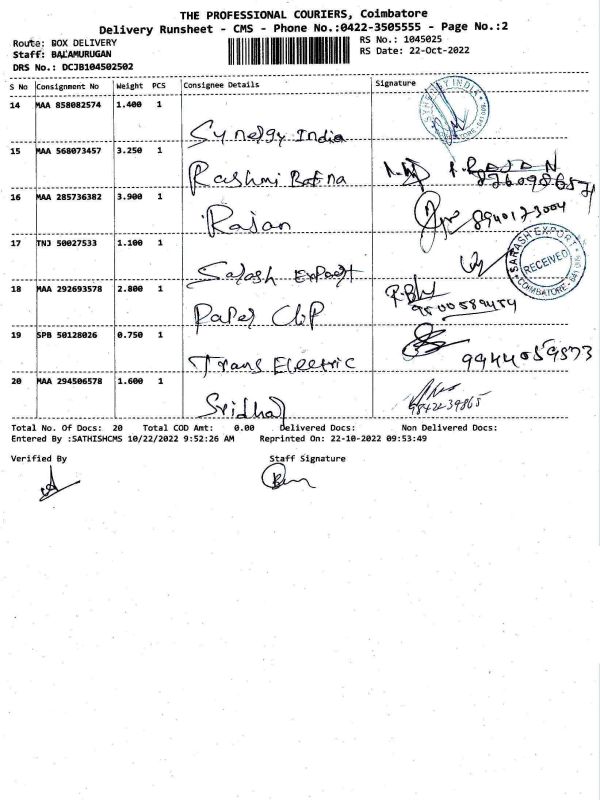 THE PROFESSIONAL COURIERS, Coimbatore
Delivery Runsheet - CMS - Phone No.:0422-3505555 - Page No.:2
Route: BOX DELIVERY
RS No.: 1045025
Staff: BALAMURUGAN
RS Date: 22-Oct-2022
DRS No.: DCJB104502502
S No Consignment No Weight PCS Consignee Details Signature
14 MAA 858082574 1.400 1 Synergy India SYNERGY INDIA
15 MAA 568073457 3.250 1 Rashmi Bafna
16 MAA 285736382 3.900 1 Rajan 8940173004
17 TNJ 50027533 1.100 1 Sarash Export SARASH EXPORT RECEIVED COIMBATORE
18 MAA 292693578 2.800 1 Paper Clip 9500589454
19 SPB 50128026 0.750 1 Trans Electric
20 MAA 294506578 1.600 1 Sridhar
Total No. Of Docs: 20 Total COD Amt: 0.00 Delivered Docs: Non Delivered Docs:
Entered By :SATHISHCMS 10/22/2022 9:52:26 AM Reprinted On: 22-10-2022 09:53:49
Verified By Staff Signature